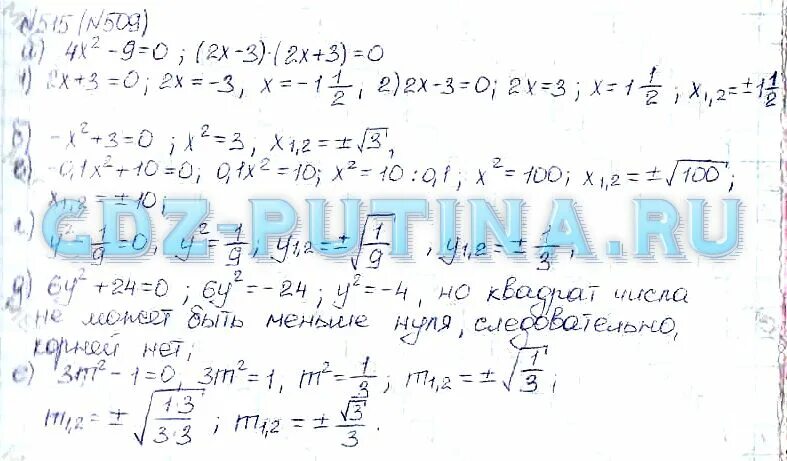 №515 (№509)
а) 4x² - 9 = 0 ; (2x-3)·(2x+3) = 0
1) 2x+3 = 0; 2x = -3, x = -1 1/2, 2) 2x-3 = 0; 2x = 3 ; x = 1 1/2 ; x₁,₂ = ±1 1/2
б) -x² + 3 = 0 ; x² = 3, x₁,₂ = ±√3,
в) -0,1x² + 10 = 0; 0,1x² = 10; x² = 10 : 0,1 ; x² = 100; x₁,₂ = ±√100 ;
x₁,₂ = ±10;
GDZ-PUTINA.RU
г) y² - 1/9 = 0, y² = 1/9 ; y₁,₂ = ±√(1/9) , y₁,₂ = ± 1/3 ,
д) 6y² + 24 = 0 ; 6y² = -24 ; y² = -4 , но квадрат числа
не может быть меньше нуля, следовательно,
корней нет;
е) 3m² - 1 = 0, 3m² = 1, m² = 1/3 ; m₁,₂ = ±√(1/3) ;
m₁,₂ = ± √(1·3/3·3) ; m₁,₂ = ± √3/3 .